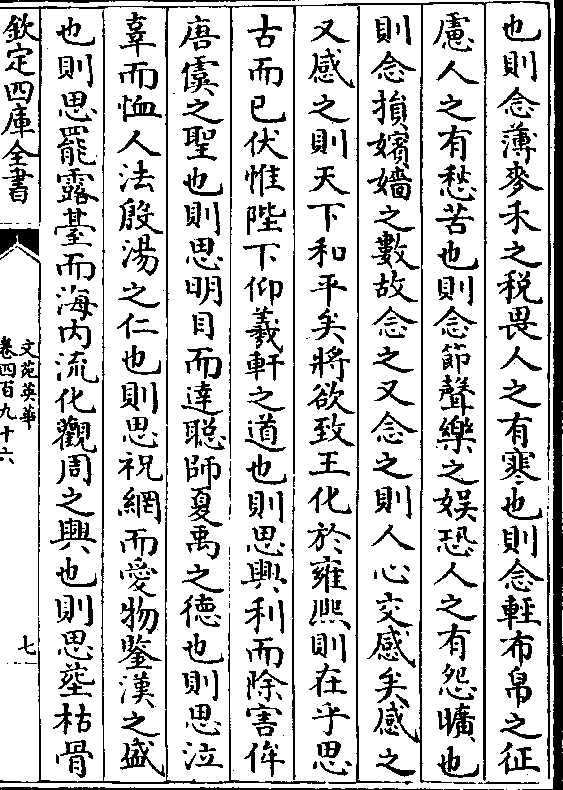 也則念薄麥禾之稅畏人之有寒也則念輕布帛之征
慮人之有愁苦也則念節聲樂之娛恐人之有怨曠也
則念損嬪嬙之數故念之又念之則人心交感矣感之
又感之則天下和平矣將欲致王化於雍熈則在乎思
古而已伏惟陛下仰羲軒之道也則思興利而除害侔
唐虞之聖也則思明目而達聰師夏禹之德也則思泣
辜而恤人法殷湯之仁也則思祝網而愛物鑒漢之盛
也則思罷露臺而海内流化觀周之興也則思塟枯骨
欽定四庫全書
文苑英華
卷四百九十六
七